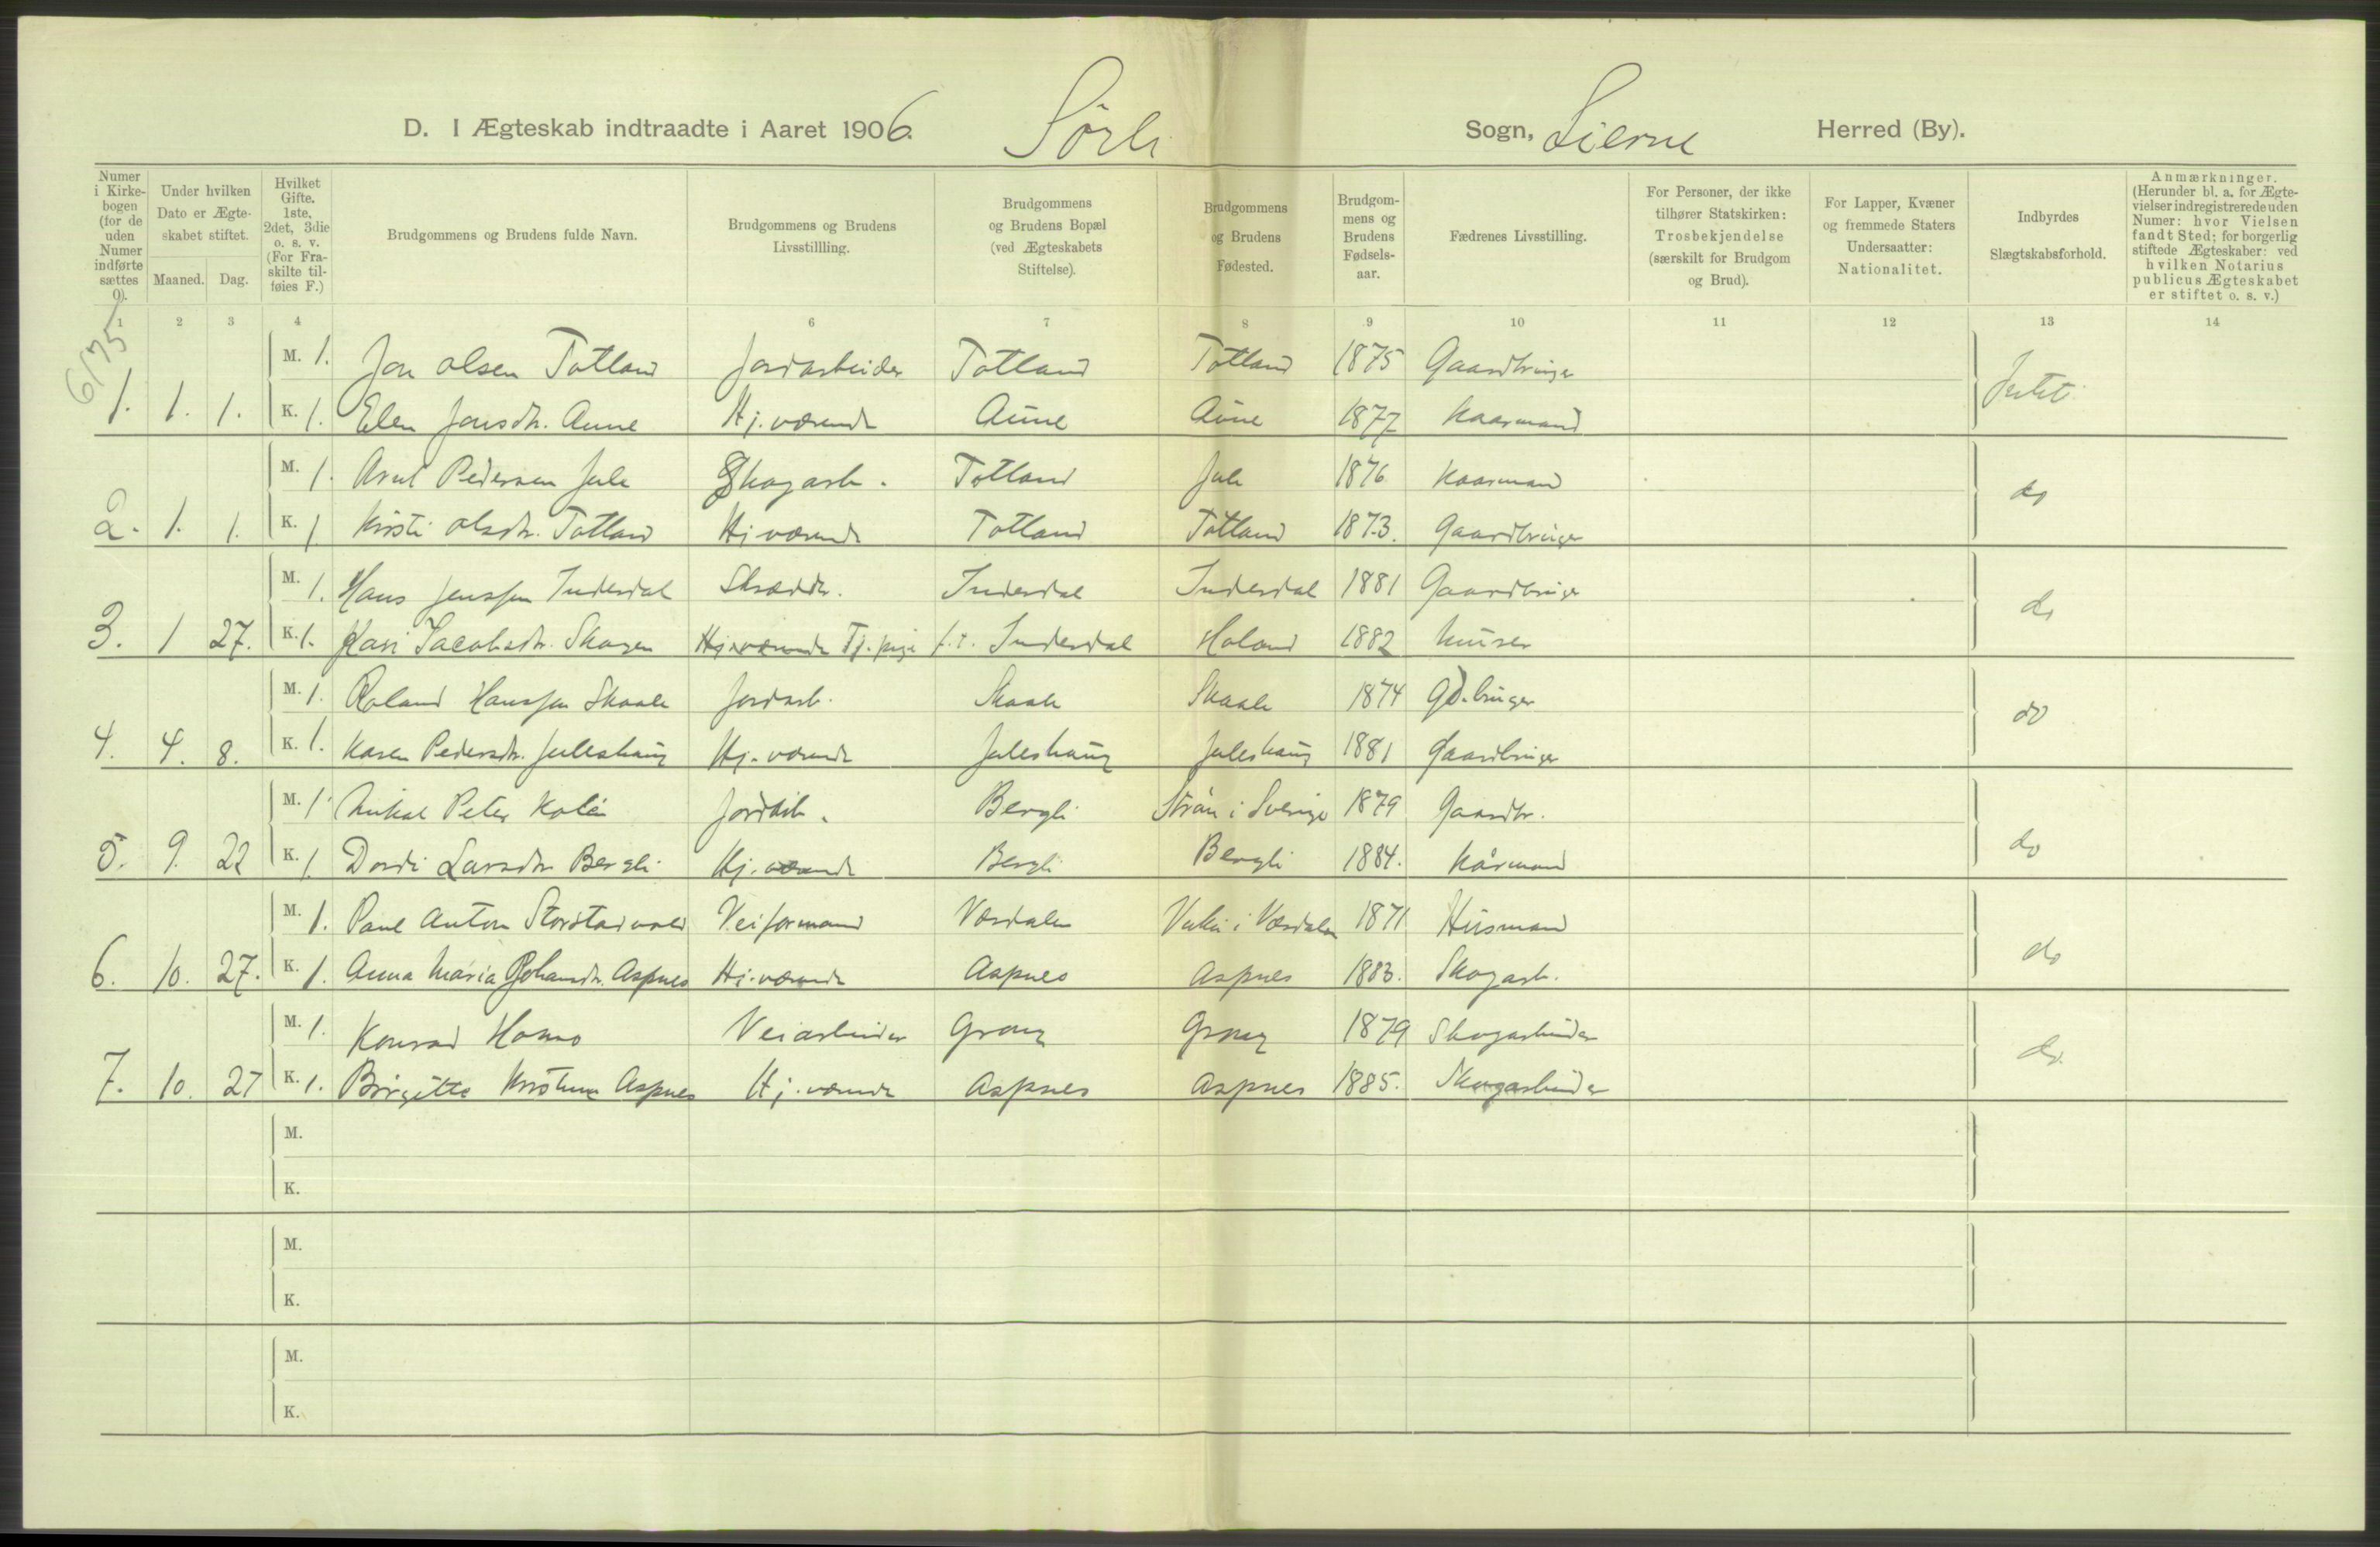 D. I Ægteskab indtraadte i Aaret 1906. Sørli Sogn, Lierne Herred (By).
Numer i Kirkebogen (for de uden Numer indførte sættes 0).
Under hvilken Dato er Ægteskabet stiftet.
Maaned. Dag.
Hvilket Gifte. 1ste, 2det, 3die o. s. v. (For Fraskilte tilføies F.)
Brudgommens og Brudens fulde Navn.
Brudgommens og Brudens Livsstillling.
Brudgommens og Brudens Bopæl (ved Ægteskabets Stiftelse).
Brudgommens og Brudens Fødested.
Brudgommens og Brudens Fødselsaar.
Fædrenes Livsstilling.
For Personer, der ikke tilhører Statskirken: Trosbekjendelse (særskilt for Brudgom og Brud).
For Lapper, Kvæner og fremmede Staters Undersaatter: Nationalitet.
Indbyrdes Slægtskabsforhold.
Anmærkninger. (Herunder bl. a. for Ægtevielser indregistrerede uden Numer: hvor Vielsen fandt Sted; for borgerlig stiftede Ægteskaber: ved hvilken Notarius publicus Ægteskabet er stiftet o. s. v.)
1 2 3 4 6 7 8 9 10 11 12 13 14
6/75
M. 1. Jon Olsen Totland Jordarbeider Totland Totland 1875 Gaardbruger
1. 1. 1. K. 1. Elen Jonsdtr. Aune Hj. værende Aune Aune 1877 Kaarmand Intet
M. 1. Arnt Pedersen Jule Skogarb. Totland Jule 1876 Kaarmand
2. 1. 1. K. 1 Kirsti Olsdtr. Totland Hj værende Totland Totland 1873. Gaardbruger do
M. 1. Hans Jenssen Inderdal Skrædder. Inderdal Inderdal 1881 Gaardbruger
3. 1 27. K. 1. Kari Jacobsdtr. Skogen Hj værende Tj. pige f. t. Inderdal Holand 1882 Murer do
M. 1. Roland Hanssen Skaale Jordarb. Skaale Skaale 1874 Gd. bruger
4. 4. 8. K. 1. Karen Pedersdtr. Juleshaug Hj. værende Juleshaug Juleshaug 1881 Gaardbruger do
M. 1 Mikal Peter Kolén Jordarb. Bergli Strøm i Sverige 1879 Gaardbr.
5. 9. 22 K. 1. Dordi Larsdtr Bergli Hj. værende Bergli Bergli 1884. Kårmand do
M. 1. Paul Anton Storstadvold Veiformand Værdalen Vuku i Værdalen 1871 Husmand
6. 10. 27. K. 1. Anna Maria Johansdtr. Aspnes Hj. værende Aspnes Aspnes 1883. Skogarb. do
M. 1. Konrad Homo Veiarbeider Grong Grong 1879 Skogarbeider
7. 10. 27 K. 1. Birgitte Kristine Aspnes Hj. værende Aspnes Aspnes 1885. Skogarbeider do
M.
K.
M.
K.
M.
K.